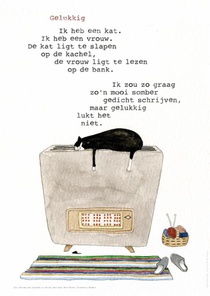 Gelukkig
Ik heb een kat.
Ik heb een vrouw.
De kat ligt te slapen
op de kachel,
de vrouw ligt te lezen
op de bank.
Ik zou zo graag
zo'n mooi somber
gedicht schrijven,
maar gelukkig
lukt het
niet.